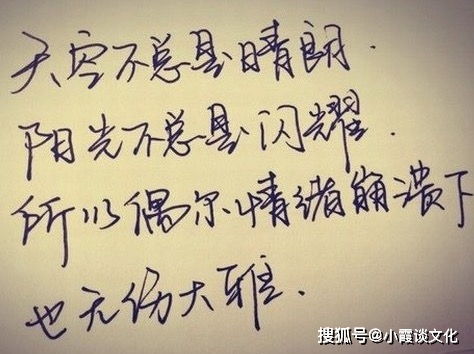 天空不总是晴朗.
阳光不总是闪耀.
所以偶尔情绪崩溃下
也无伤大雅.
搜狐号@小霞谈文化